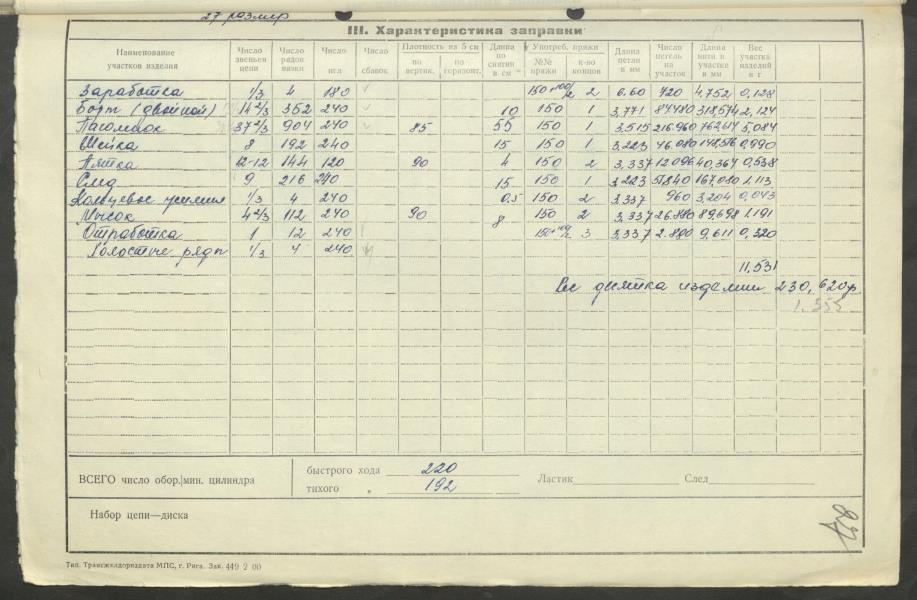 27 размер
III. Характеристика заправки
Наименование участков изделия | Число звеньев цепи | Число рядов вязки | Число игл | Число сбавок | Плотность на 5 см по вертик. | по горизонт. | Длина по снятии в см | Употреб. пряжи №№ пряжи | к-во концов | Длина петли в мм | Число петель на участок | Длина нити в участке в мм | Вес участка изделий в г
Заработка 1/3 4 180 2 6.60 720 4,752 0,128
Борт (двойной) 14 2/3 352 240 10 150 1 3,771 84480 318,574 2,124
Паголенок 37 2/3 904 240 85 55 150 1 3,515 216.960 762,614 5,084
Шейка 8 192 240 15 150 1 3,223 46.080 148,516 0,990
Пятка 12-12 144 120 90 4 150 2 3.337 12.096 40,364 0,538
След 9 216 240 15 150 1 3.223 51.840 167.080 1.113
Кольцевое усиление 1/3 4 240 0.5 150 2 3.337 960 3,204 0,043
Мысок 4 2/3 112 240 90 8 150 2 3.337 26.880 89,698 1.191
Отработка 1 12 240 3 3,337 2.880 9,611 0,320
Холостые ряды 1/3 4 240
11,531
Вес десятка изделий 230,620 г
1.355
ВСЕГО число обор. мин. цилиндра быстрого хода 220
тихого „ 192
Ластик След
Набор цепи—диска
Тип. Трансжелдориздата МПС, г. Рига. Зак. 449 2 00